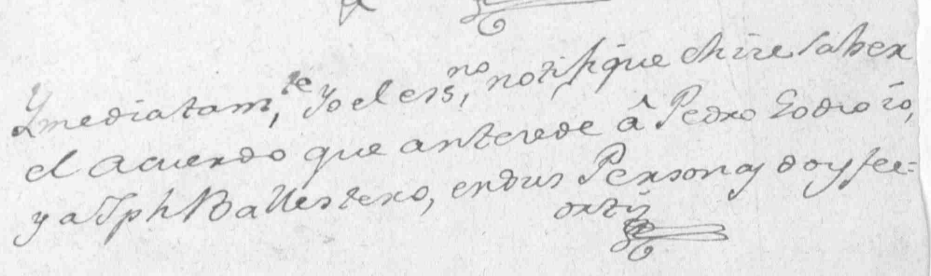 Ymediatam,te yo el ess,no notifique e hize saber
el acuerdo que antecede â Pedro Godio io,
y a Jph Ballestero, en sus Personas doy fee=
ortiz